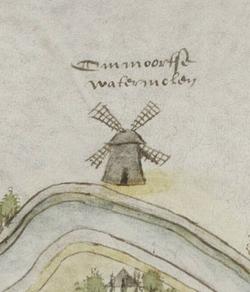 Ommoortse
watermolen